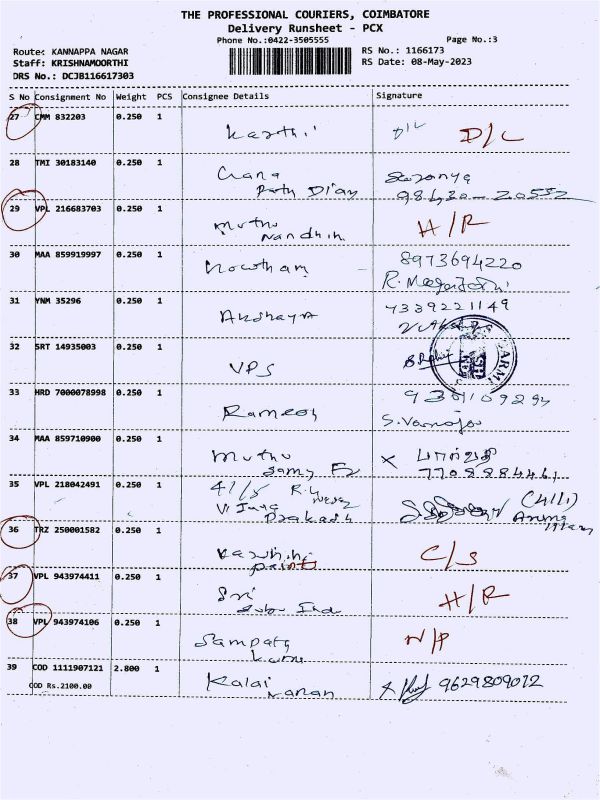 THE PROFESSIONAL COURIERS, COIMBATORE
Delivery Runsheet - PCX
Phone No.:0422-3505555
Page No.:3
Route: KANNAPPA NAGAR
RS No.: 1166173
Staff: KRISHNAMOORTHI
RS Date: 08-May-2023
DRS No.: DCJB116617303
S No Consignment No Weight PCS Consignee Details Signature
27 CMM 832203 0.250 1
Karthi D/L D/L
28 TMI 30183140 0.250 1
Saranya
29 VPL 216683703 0.250 1
Muthu H/R
Nandhin
30 MAA 859919997 0.250 1
Nowtham 8973694220
31 YNM 35296 0.250 1
Akshaya 7339221149
32 SRT 14935003 0.250 1
VPS
33 HRD 7000078998 0.250 1
Ramesh
34 MAA 859710900 0.250 1
Muthu
Samy
35 VPL 218042491 0.250 1
41/5
Prakash
36 TRZ 250001582 0.250 1
C/S
37 VPL 943974411 0.250 1
Sri H/R
38 VPL 943974106 0.250 1
Sampath N/P
39 COD 1111907121 2.800 1
COD Rs.2100.00
Kalai 9629809072